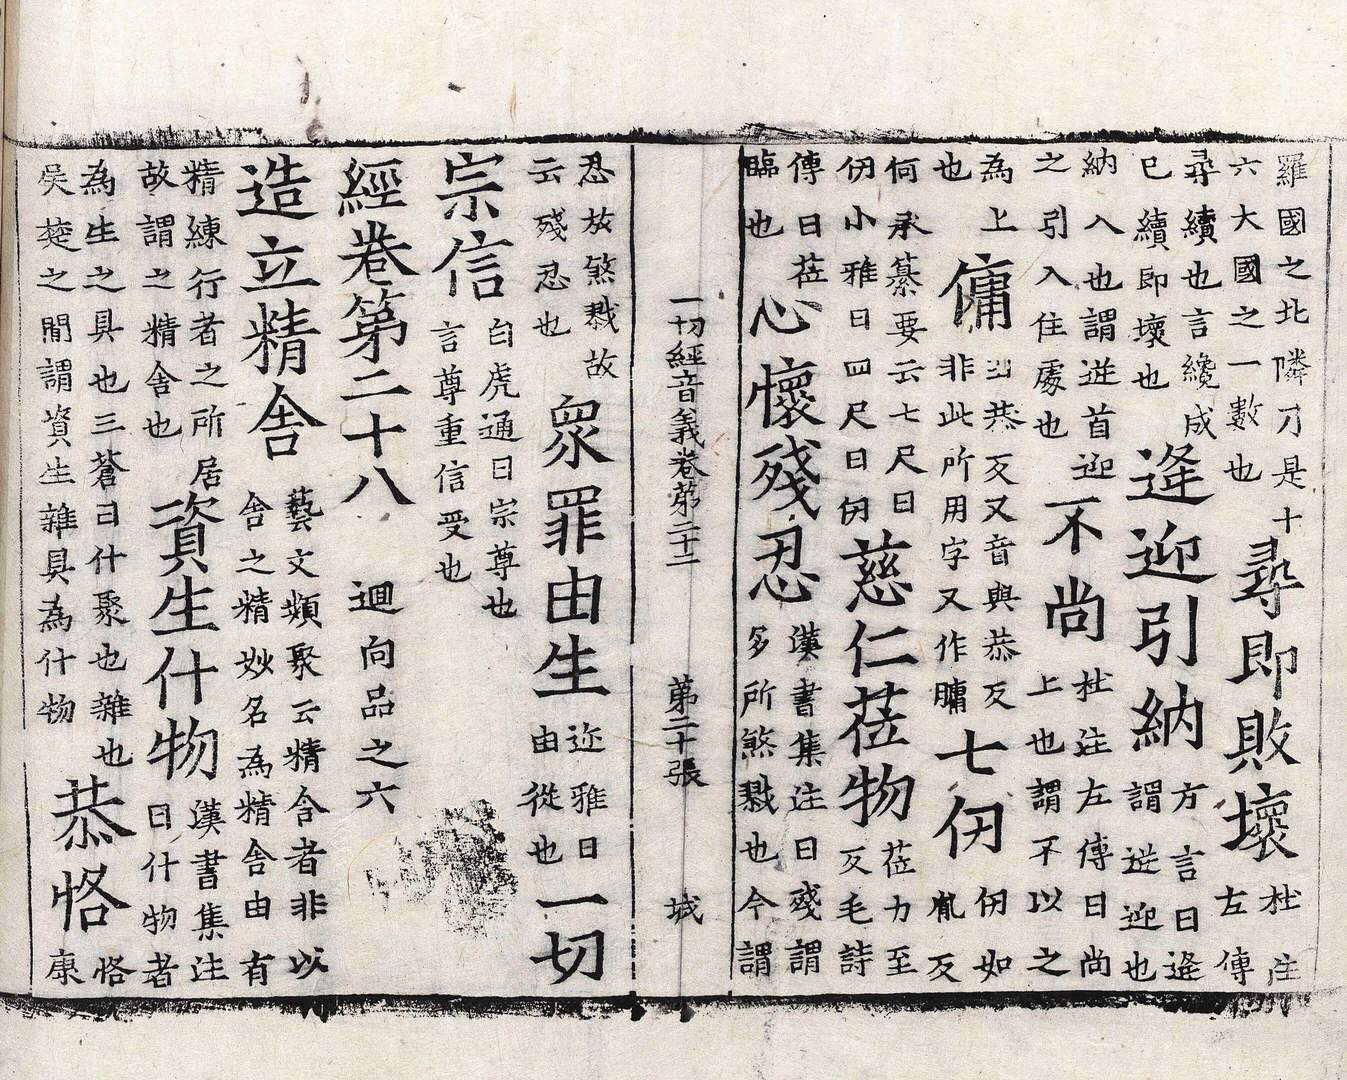 羅國之北隣乃是十
六大國之一數也
尋即敗壞
杜注
左傳
尋續也言纔成
已續即壞也
逄迎引納
方言曰逄
謂逆迎也
納入也謂逆首迎
之引入住處也
不尚
杜注左傳曰尚
上也謂不以之
為上
也
傭
丑恭反又音與恭反
非此所用字又作牗
七仞
仞如
胤反
何承纂要云七尺曰
仞小雅曰四尺曰仞
慈仁莅物
莅力至
反毛詩
傳曰莅
臨也
心懷殘忍
漢書集注曰殘謂
多所煞戮也今謂
一切經音義卷苐二十二 第二十張 城
忍放煞戮故
云殘忍也
眾罪由生
迩雅曰
由從也
一切
宗信
白虎通曰宗尊也
言尊重信受也
經卷第二十八 迴向品之六
造立精舍
藝文類聚云精舍者非以
舍之精妙名為精舍由有
精練行者之所居
故謂之精舍也
資生什物
漢書集注
曰什物者
為生之具也三蒼曰什聚也雜也
吳楚之間謂資生雜具為什物
恭恪
恪
康